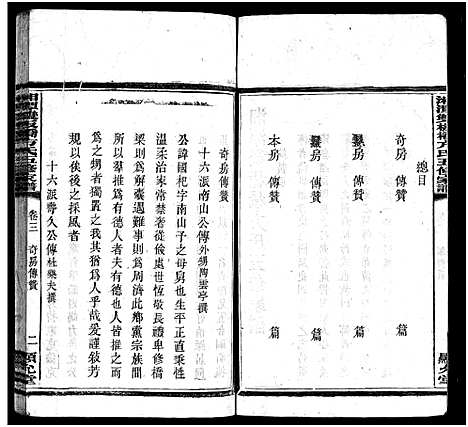 總目
奇房 傳贊 篇
房 傳贊 篇
房 傳贊 篇
本房 傳贊 篇
奇房傳贊
十六派南山公傳外甥陶雲亭撰
公諱國杞字南山子之母舅也生平正直秉性
温柔治家常禁奢者從儉處世恆敬長禮卑修橋
梁則爲將解囊遇難事則爲周濟此鄉黨宗族間
所以羣推爲有德人者夫有德也人皆推之而
爲之甥者獨置之我其猶爲人乎哉爰謹敍芳
規以俟後之採風者
十六派壽久公傳杜樂夫撰
卷三 奇房傳贊